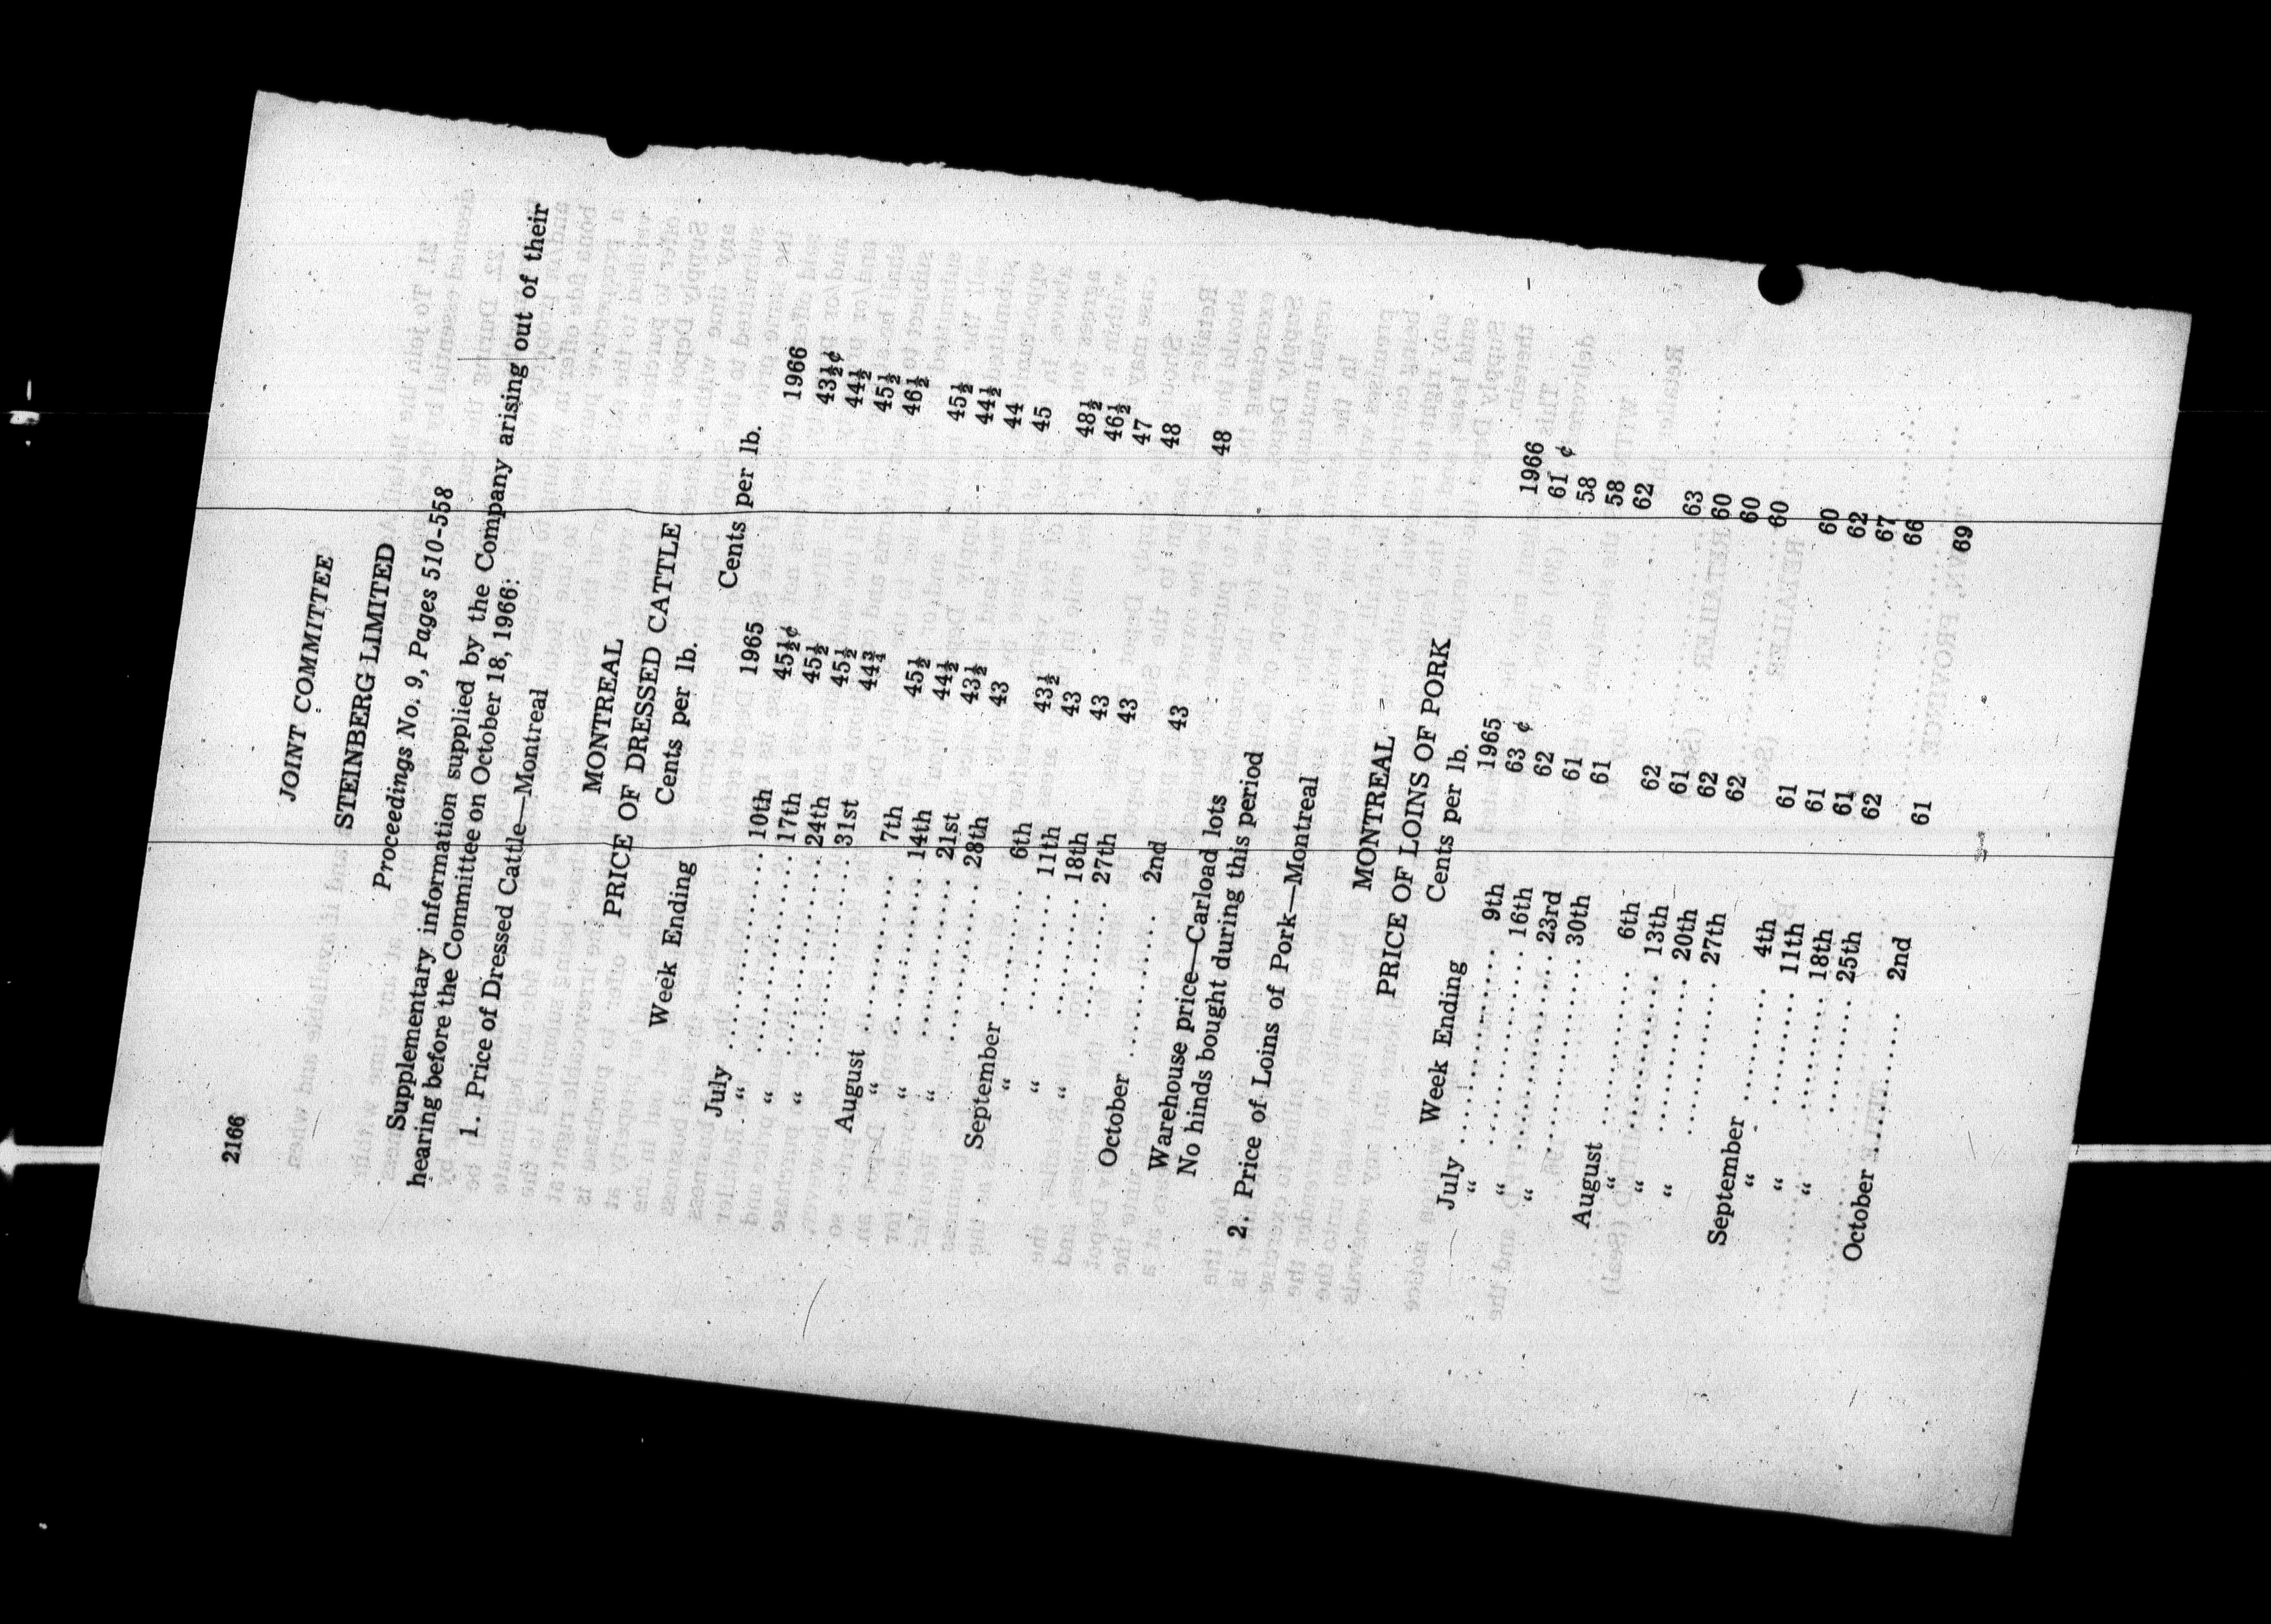 2166
JOINT COMMITTEE
STEINBERG LIMITED
Proceedings No. 9, Pages 510-558
Supplementary information supplied by the Company arising out of their
hearing before the Committee on October 18, 1966:
1. Price of Dressed Cattle—Montreal
MONTREAL
PRICE OF DRESSED CATTLE
Week Ending Cents per lb. Cents per lb.
1965 1966
July .......... 10th 45½¢ 43½¢
“ .......... 17th 45½ 44½
“ .......... 24th 45½ 45½
“ .......... 31st 44¾ 46½
August .......... 7th 45½ 45½
“ .......... 14th 44½ 44½
“ .......... 21st 43½ 44
“ .......... 28th 43 45
September .......... 6th 43½ 48½
“ .......... 11th 43 46½
“ .......... 18th 43 47
“ .......... 27th 43 48
October .......... 2nd 43 48
Warehouse price—Carload lots
No hinds bought during this period
2. Price of Loins of Pork—Montreal
MONTREAL
PRICE OF LOINS OF PORK
Week Ending Cents per lb.
1965 1966
July .......... 9th 63 ¢ 61 ¢
“ .......... 16th 62 58
“ .......... 23rd 61 58
“ .......... 30th 61 62
August .......... 6th 62 63
“ .......... 13th 61 60
“ .......... 20th 62 60
“ .......... 27th 62 60
September .......... 4th 61 60
“ .......... 11th 61 62
“ .......... 18th 61 67
“ .......... 25th 62 66
October .......... 2nd 61 69